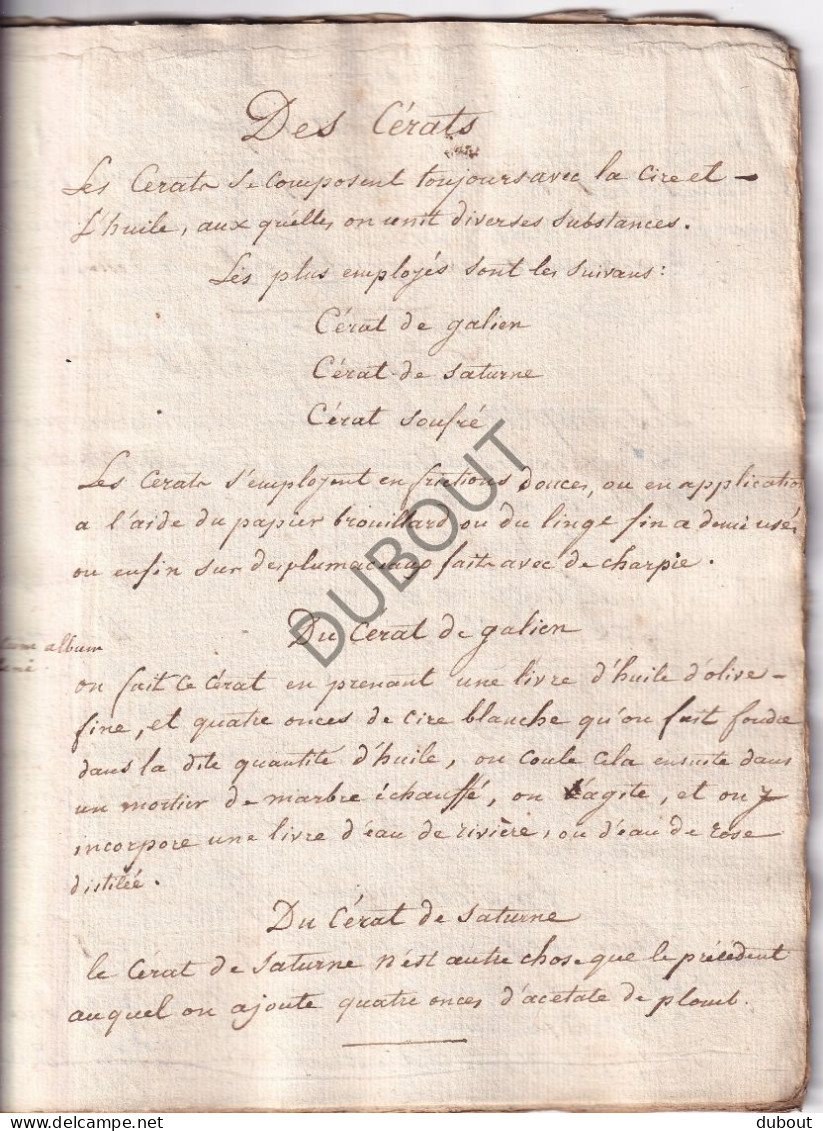 Des Cérats
Les Cerats se composent toujours avec la cire et -
L'huile, aux quelles on unit diverses substances.
Les plus employés sont les suivans:
Cérat de galien
Cérat de saturne
Cérat soufré
Les Cerats s'employent en frictions douces, ou en application
a l'aide du papier brouillard ou du linge fin a demi usé,
ou enfin sur des plumaceaux faits avec de charpie.
Du Cerat de galien
album
on fait ce cérat en prenant une livre d'huile d'olive -
fine, et quatre onces de cire blanche qu'on fait fondre
dans la dite quantité d'huile, on coule cela ensuite dans
un mortier de marbre échauffé, on l'agite, et on y
incorpore une livre d'eau de rivière, ou d'eau de rose
distilée.
Du Cérat de saturne
le Cérat de saturne n'est autre chose que le précédent
auquel on ajoute quatre onces d'acetate de plomb.
DUBOUT
delcampe.net
dubout